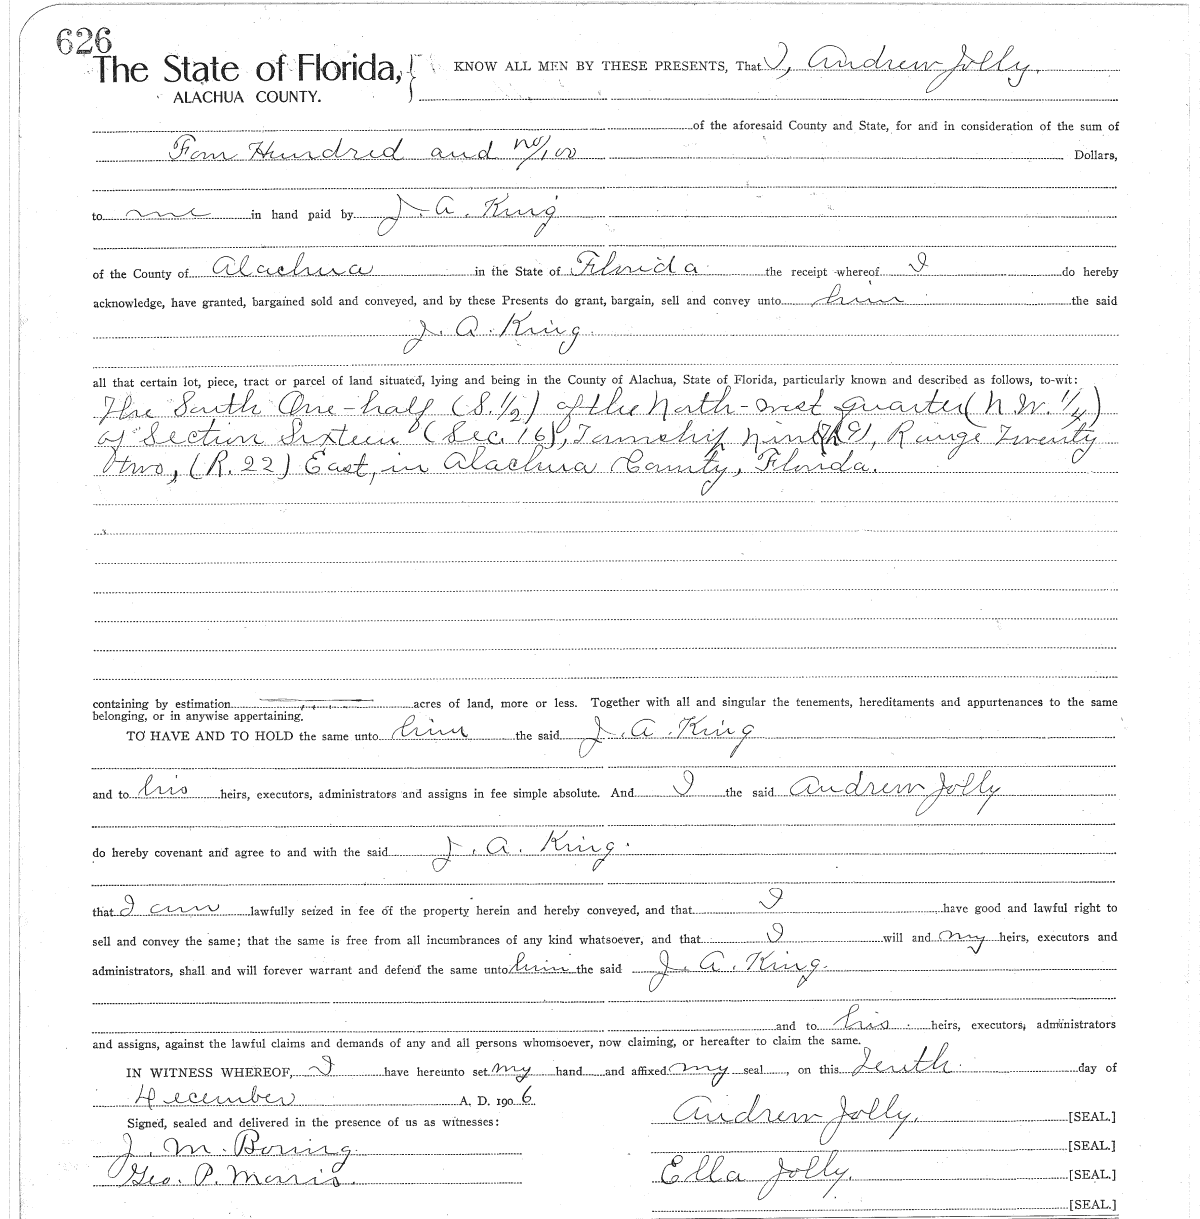 626
The State of Florida,
ALACHUA COUNTY.
KNOW ALL MEN BY THESE PRESENTS, That I, Andrew Jolly.
of the aforesaid County and State, for and in consideration of the sum of
Four Hundred and no/100 Dollars,
to me in hand paid by J. A. King
of the County of Alachua in the State of Florida the receipt whereof I do hereby
acknowledge, have granted, bargained sold and conveyed, and by these Presents do grant, bargain, sell and convey unto him the said
J. A. King.
all that certain lot, piece, tract or parcel of land situated, lying and being in the County of Alachua, State of Florida, particularly known and described as follows, to-wit:
The South One-half (S. 1/2) of the North-west quarter (N.W. 1/4)
of Section Sixteen (Sec. 16), Township Nine (9), Range Twenty
two, (R. 22) East, in Alachua County, Florida.
containing by estimation acres of land, more or less. Together with all and singular the tenements, hereditaments and appurtenances to the same
belonging, or in anywise appertaining.
TO HAVE AND TO HOLD the same unto him the said J. A. King
and to his heirs, executors, administrators and assigns in fee simple absolute. And I the said Andrew Jolly
do hereby covenant and agree to and with the said J. A. King.
that I am lawfully seized in fee of the property herein and hereby conveyed, and that I have good and lawful right to
sell and convey the same; that the same is free from all incumbrances of any kind whatsoever, and that I will and my heirs, executors and
administrators, shall and will forever warrant and defend the same unto him the said J. A. King.
and to his heirs, executors, administrators
and assigns, against the lawful claims and demands of any and all persons whomsoever, now claiming, or hereafter to claim the same.
IN WITNESS WHEREOF, I have hereunto set my hand and affixed my seal, on this Tenth day of
December A. D. 1906
Signed, sealed and delivered in the presence of us as witnesses:
Andrew Jolly. [SEAL.]
J. M. Boring [SEAL.]
Geo. P. Morris. Ella Jolly. [SEAL.]
[SEAL.]